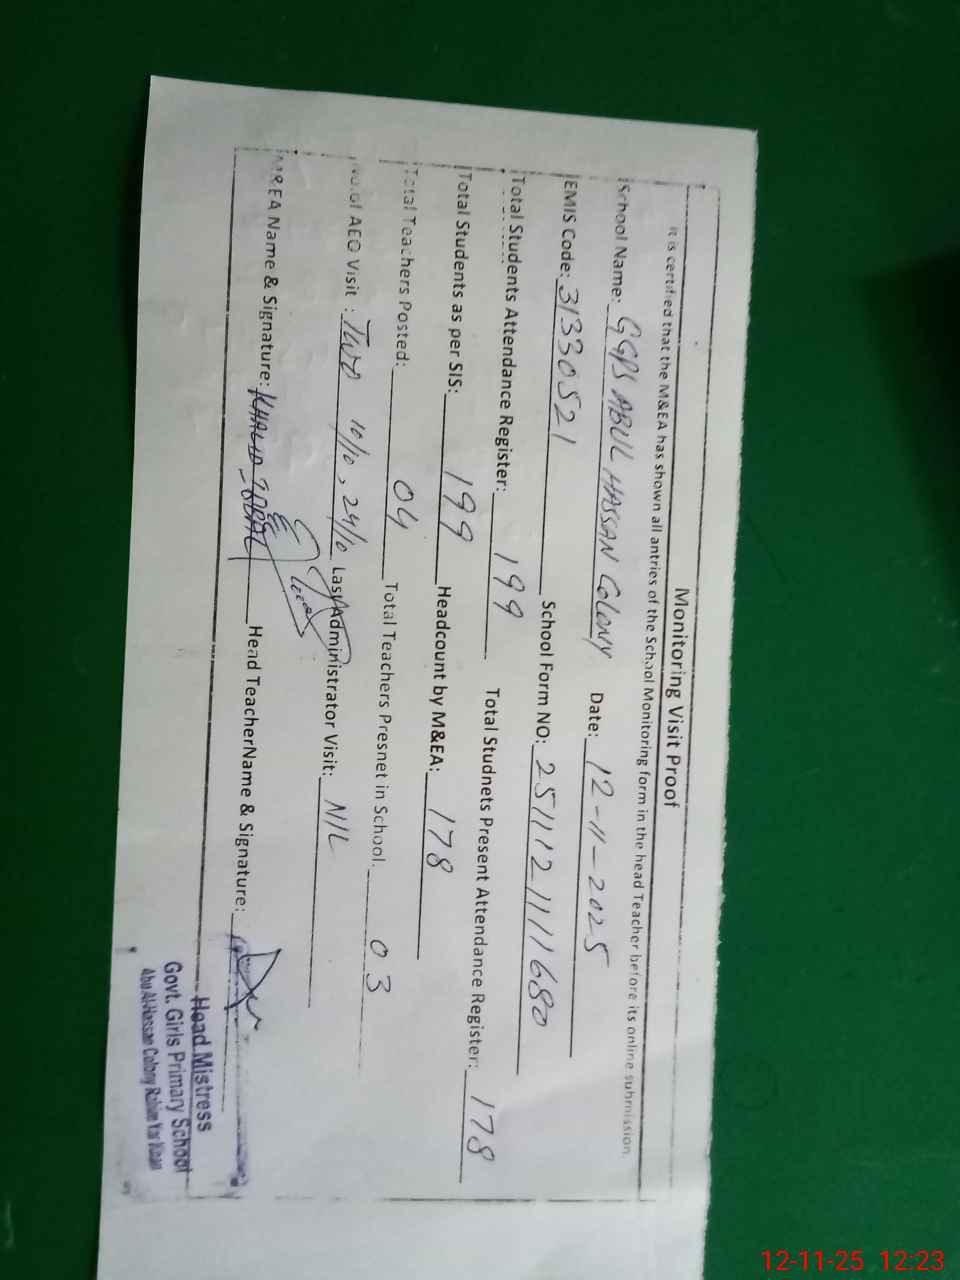 Monitoring Visit Proof
It is certified that the M&EA has shown all antries of the School Monitoring form in the head Teacher before its online submission.
School Name: GGPS ABUL HASSAN COLONY Date: 12-11-2025
EMIS Code: 31330521 School Form NO: 2511121111680
Total Students Attendance Register: 199 Total Studnets Present Attendance Register: 178
Total Students as per SIS: 199 Headcount by M&EA: 178
Total Teachers Posted: 04 Total Teachers Presnet in School. 03
No.of AEO Visit : Two 10/10, 24/10 Last Administrator Visit: NIL
M&EA Name & Signature: KHALID IQBAL Head TeacherName & Signature:
Head Mistress
Govt. Girls Primary School
Abu Al-Hassan Colony Rahim Yar Khan
12-11-25 12:23